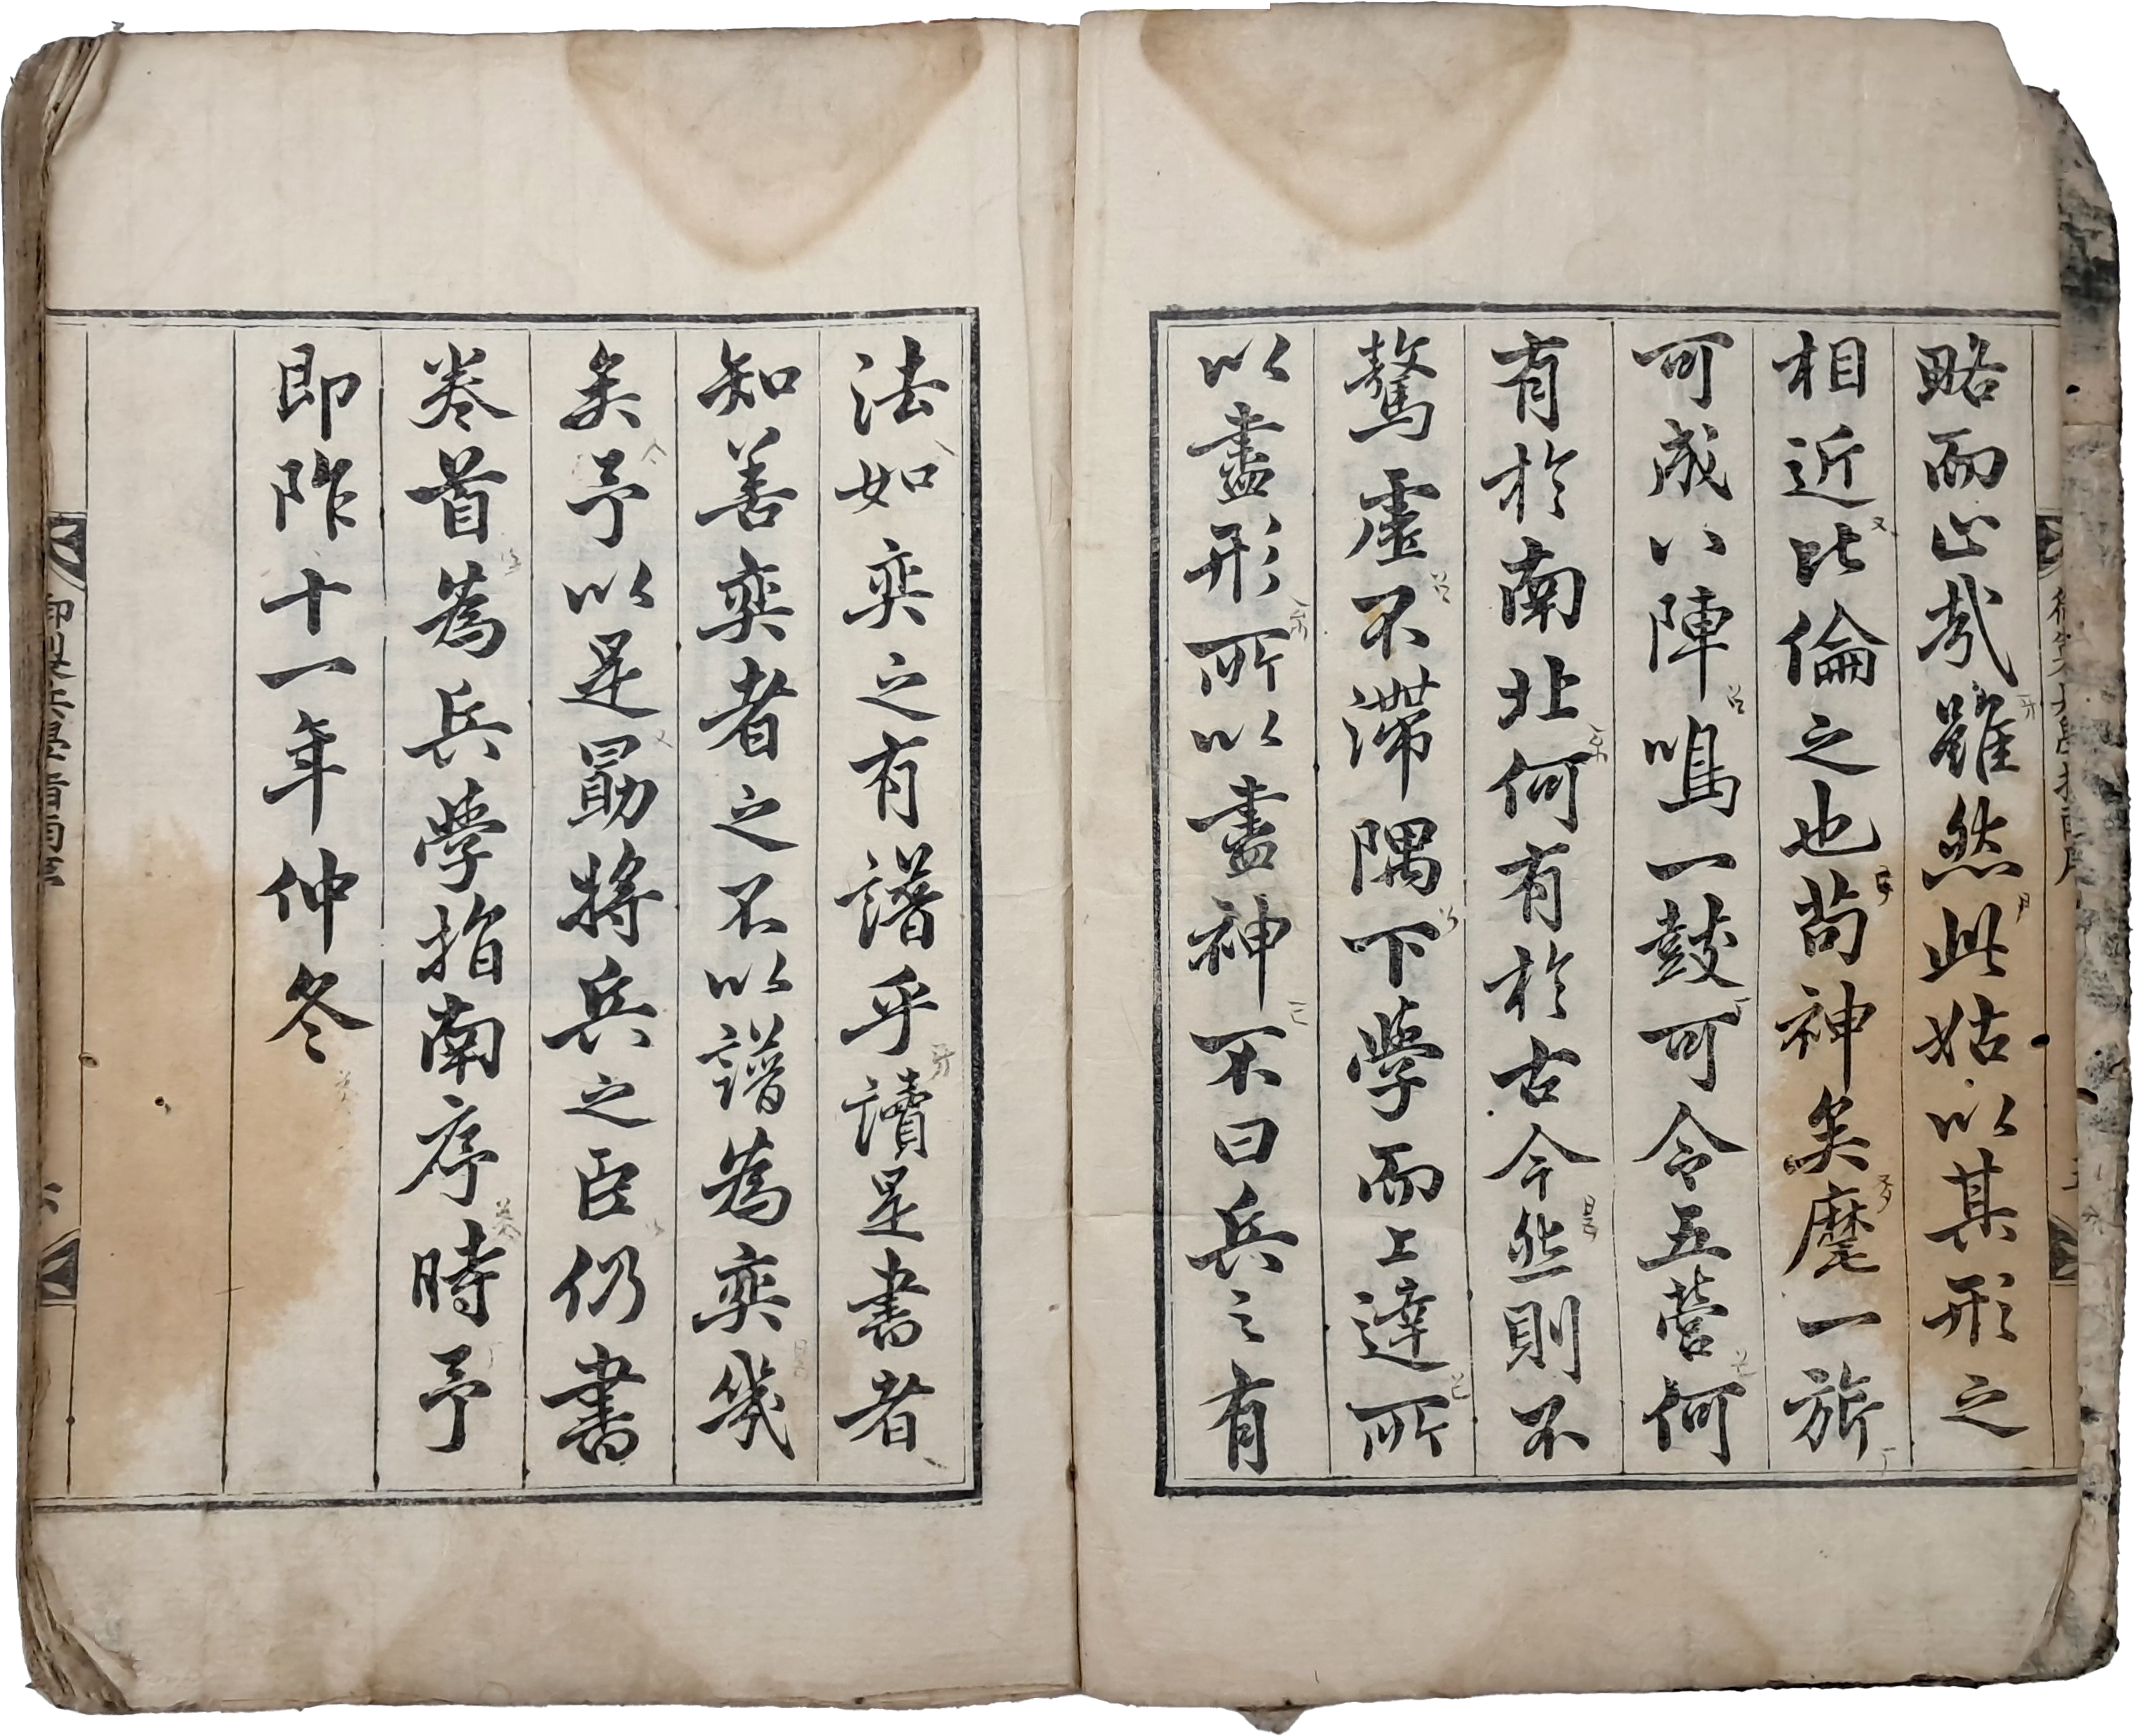 略而止哉雖然此姑以其形之
相近比倫之也苟神矣麾一旅
可成八陣鳴一鼓可令五營何
有於南北何有於古今然則不
騖虛不滯隅下學而上達所
以盡形所以盡神不曰兵之有
法如奕之有譜乎讀是書者
知善奕者之不以譜為奕幾
矣予以是勗將兵之臣仍書
卷首為兵學指南序時予
即阼十一年仲冬